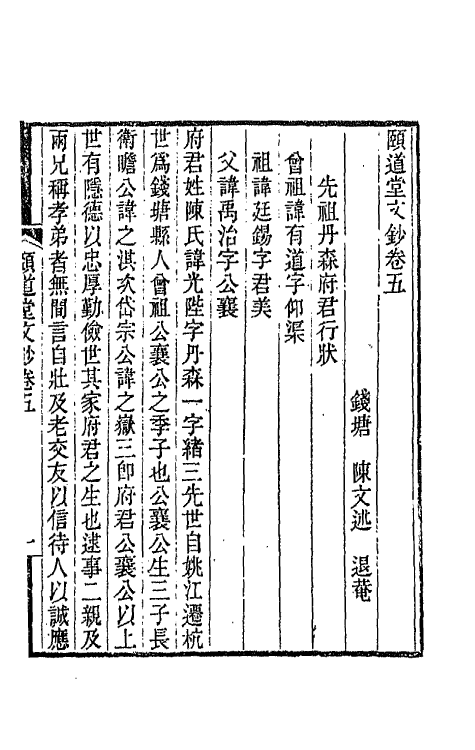 頤道堂文鈔卷五
錢塘　陳文述　退菴
先祖丹森府君行狀
曾祖諱有道字仰渠
祖諱廷錫字君美
父諱禹治字公襄
府君姓陳氏諱光陛字丹森一字緒三先世自姚江遷杭
世爲錢塘縣人曾祖公襄公之季子也公襄公生三子長
衛瞻公諱之淇次岱宗公諱之嶽三卽府君公襄公以上
世有隱德以忠厚勤儉世其家府君之生也逮事二親及
兩兄稱孝弟者無間言自壯及老交友以信待人以誠應
頤道堂文鈔卷五　一